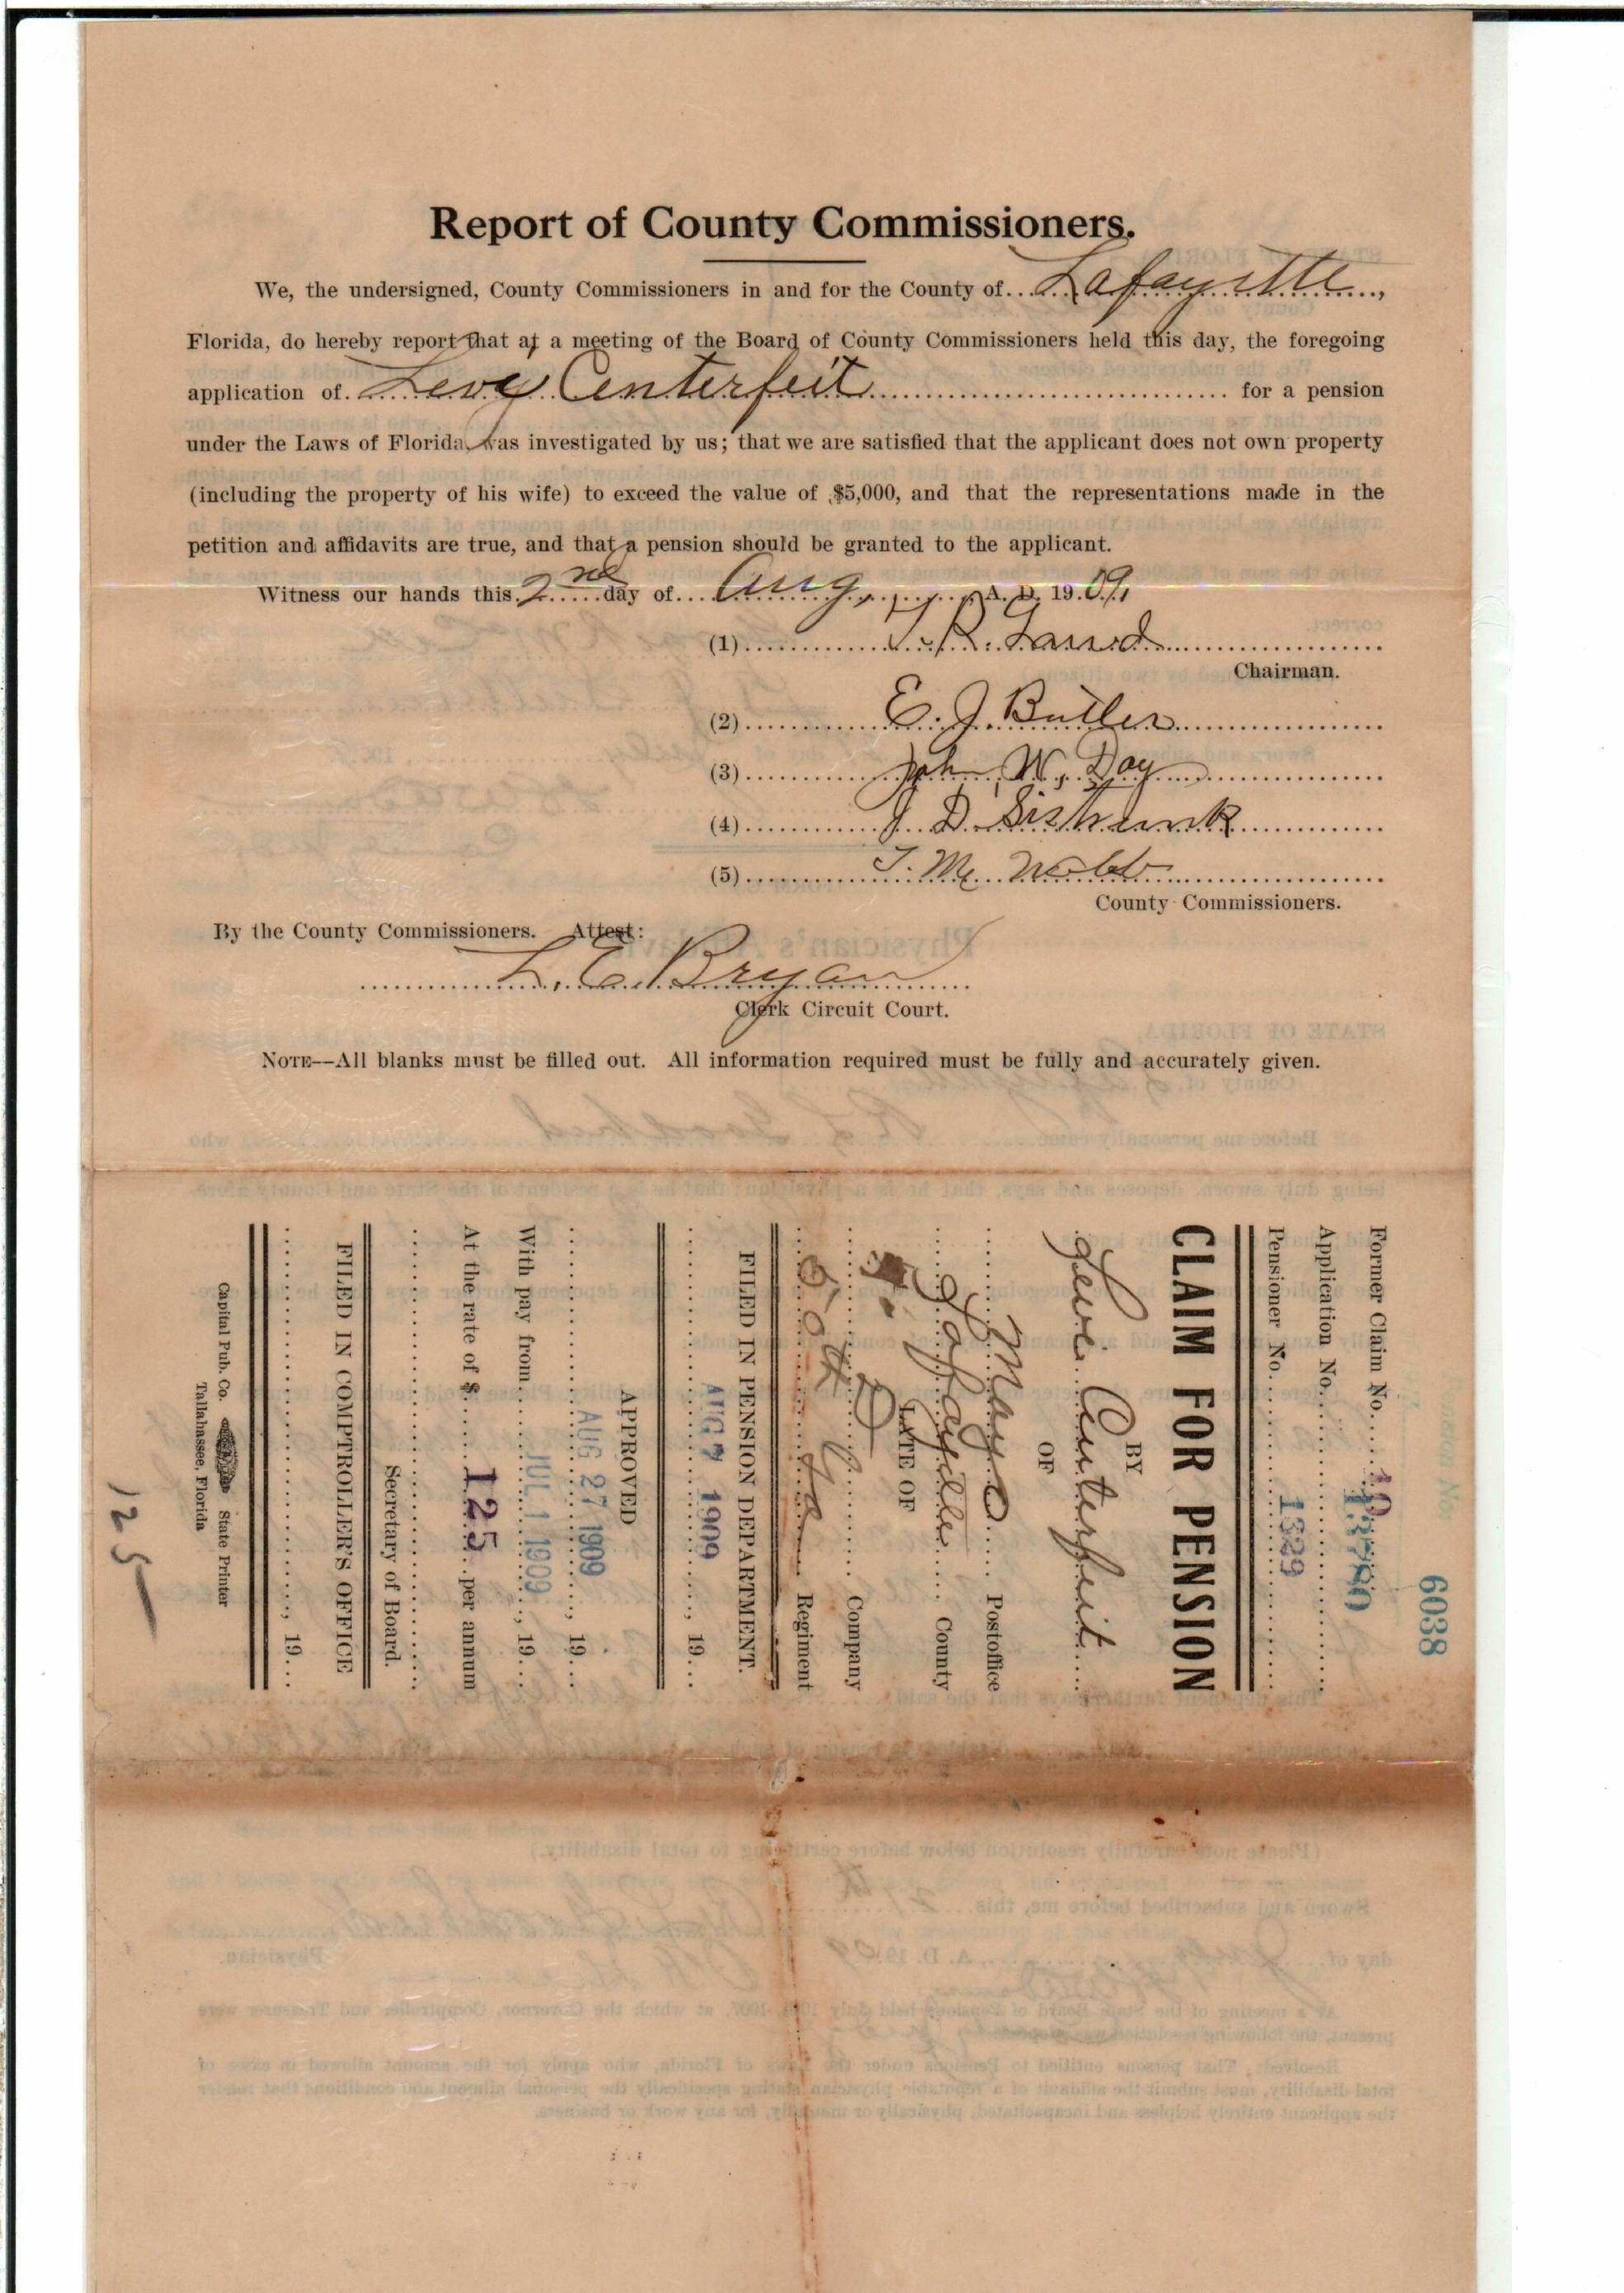 Report of County Commissioners.
We, the undersigned, County Commissioners in and for the County of Lafayette,
Florida, do hereby report that at a meeting of the Board of County Commissioners held this day, the foregoing
application of Levy Centerfeit for a pension
under the Laws of Florida was investigated by us; that we are satisfied that the applicant does not own property
(including the property of his wife) to exceed the value of $5,000, and that the representations made in the
petition and affidavits are true, and that a pension should be granted to the applicant.
Witness our hands this 2nd day of Aug, A. D. 1909,
(1) T. R. Land
Chairman.
(2) E. J. Butler
(3) John W. Day
(4) J. D. Sistrunk
(5) T. M. Webb
County Commissioners.
By the County Commissioners. Attest:
L. E. Bryan
Clerk Circuit Court.
NOTE--All blanks must be filled out. All information required must be fully and accurately given.
6038
Former Claim No.
Application No.
Pensioner No. 1329
CLAIM FOR PENSION
BY
Levi Centerfeit
OF
Mayo Postoffice
Lafayette County
LATE OF
Company
Regiment
FILED IN PENSION DEPARTMENT.
AUG 7 1909, 19
APPROVED
AUG 27 1909, 19
With pay from JUL 1 1909, 19
At the rate of $ 125 per annum
Secretary of Board.
FILED IN COMPTROLLER'S OFFICE
, 19
Capital Pub. Co. State Printer
Tallahassee, Florida
125